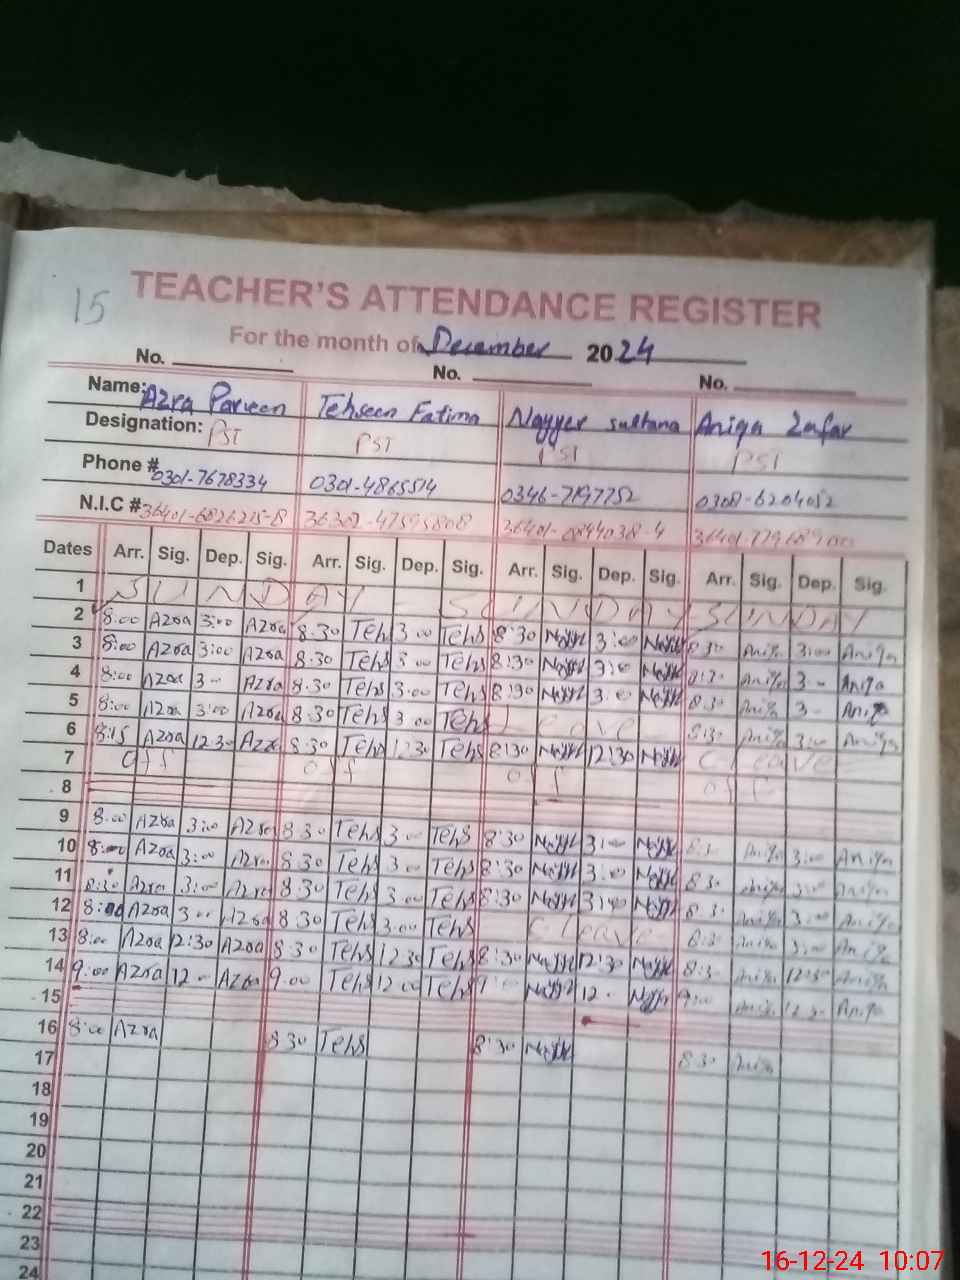 15
TEACHER'S ATTENDANCE REGISTER
For the month of December 2024
No. No. No.
Name: Azra Parveen Tehseen Fatima Nayyer sultana Aniqa Zafar
Designation: PST PST PST PST
Phone # 0301-7678334 0301-4865514 0346-7197752 0308-6204052
N.I.C #
Dates Arr. Sig. Dep. Sig. Arr. Sig. Dep. Sig. Arr. Sig. Dep. Sig. Arr. Sig. Dep. Sig.
1 SUNDAY SUNDAY SUNDAY
2 8:00 Azra 3:00 Azra 8:30 Tehs 3:00 Tehs 8:30 3:00 8:30 Aniqa 3:00 Aniqa
3 8:00 Azra 3:00 Azra 8:30 Tehs 3:00 Tehs 8:30 3:00 8:30 Aniqa 3:00 Aniqa
4 8:00 Azra 3:00 Azra 8:30 Tehs 3:00 Tehs 8:30 3:00 8:30 Aniqa 3:00 Aniqa
5 8:00 Azra 3:00 Azra 8:30 Tehs 3:00 Tehs Leave 8:30 Aniqa 3:00 Aniqa
6 8:15 Azra 12:30 Azra 8:30 Tehs 12:30 Tehs 8:30 12:30 C leave
7 off off off off
8
9 8:00 Azra 3:00 Azra 8:30 Tehs 3:00 Tehs 8:30 3:00 8:30 Aniqa 3:00 Aniqa
10 8:00 Azra 3:00 Azra 8:30 Tehs 3:00 Tehs 8:30 3:00 8:30 Aniqa 3:00 Aniqa
11 8:30 Azra 3:00 Azra 8:30 Tehs 3:00 Tehs 8:30 3:00 8:30 Aniqa 3:00 Aniqa
12 8:00 Azra 3:00 Azra 8:30 Tehs 3:00 Tehs C leave 8:30 Aniqa 3:00 Aniqa
13 8:00 Azra 12:30 Azra 8:30 Tehs 12:30 Tehs 8:30 12:30 8:30 Aniqa 12:30 Aniqa
14 9:00 Azra 12:00 Azra 9:00 Tehs 12:00 Tehs 9:00 12:00 9:00 Aniqa Aniqa
15
16 8:00 Azra 8:30 Tehs 8:30 8:30 Aniqa
17
18
19
20
21
22
23
24
16-12-24 10:07